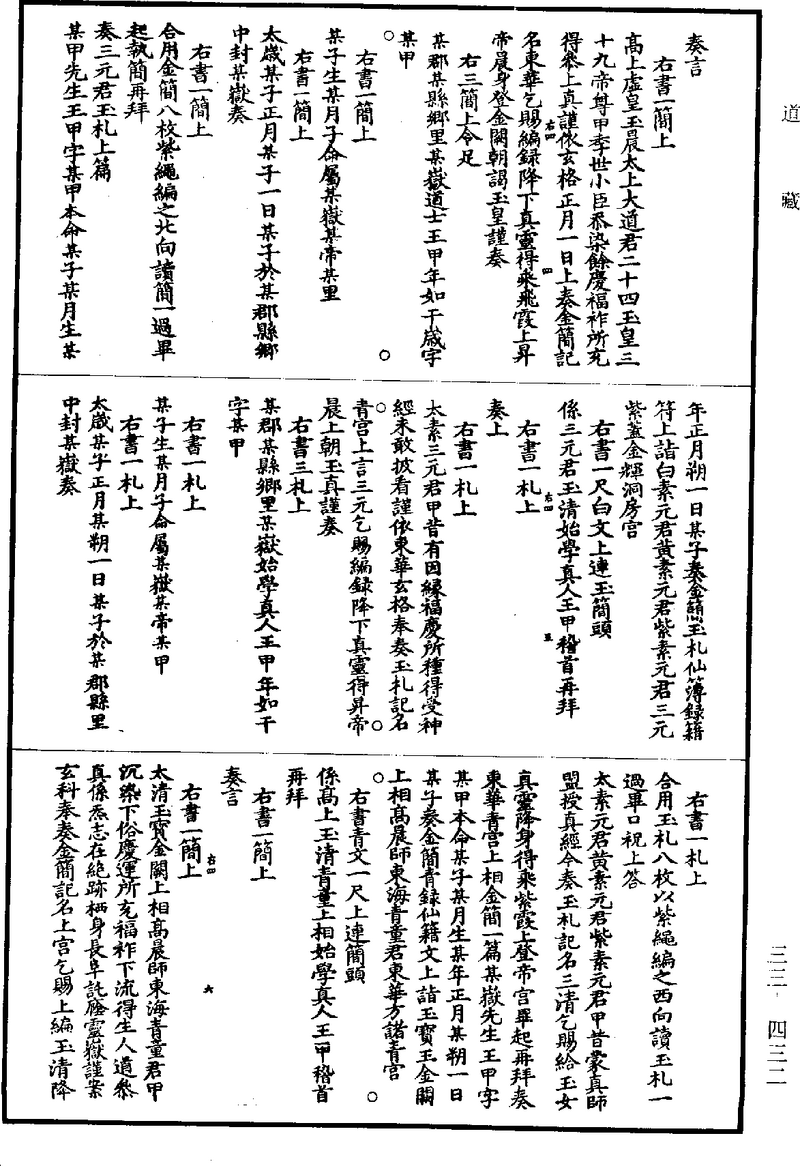 道藏
奏言
右書一簡上
高上虛皇玉晨太上大道君二十四玉皇三
十九帝尊甲季世小臣忝染餘慶福祚所充
得參上真謹依玄格正月一日上奏金簡記
名東華乞賜編録降下真靈得乘飛霞上昇
帝晨身登金闕朝謁玉皇謹奏
右三簡上令足
某郡某縣鄉里某嶽道士王甲年如干歲字
某甲
右書一簡上
某子生某月子命屬某嶽某帝某里
右書一簡上
太歲某子正月某子一日某子於某郡縣鄉
中封某嶽奏
右書一簡上
合用金簡八枚紫繩編之北向讀簡一過畢
起執簡再拜
奏三元君玉札上篇
某甲先生王甲字某甲本命某子某月生某
年正月朔一日某子奏金簡玉札仙簿録籍
符上詣白素元君黃素元君紫素元君三元
紫蓋金輝洞房宮
右書一尺白文上連玉簡頭
係三元君玉清始學真人王甲稽首再拜
右書一札上
奏上
右書一札上
太素三元君甲昔有因緣福慶所種得受神
經未敢披看謹依東華玄格奉奏玉札記名
青宮上言三元乞賜編録降下真靈得昇帝
晨上朝玉真謹奏
右書三札上
某郡某縣鄉里某嶽始學真人王甲年如干
字某甲
右書一札上
某子生某月子命屬某嶽某帝某甲
右書一札上
太歲某子正月某朔一日某子於某郡縣里
中封某嶽奏
右書一札上
合用玉札八枚以紫繩編之西向讀玉札一
過畢口祝上答
太素元君黃素元君紫素元君甲昔蒙真師
盟授真經今奏玉札記名三清乞賜給玉女
真靈降身得乘紫霞上登帝宮畢起再拜奏
東華青宮上相金簡一篇某嶽先生王甲字
某甲本命某子某月生某年正月某朔一日
某子奏金簡青録仙籍文上詣玉寶玉金闕
上相高晨師東海青童君東華方諸青宮
右書青文一尺上連簡頭
係高上玉清青童上相始學真人王甲稽首
再拜
右書一簡上
奏言
右書一簡上
太清玉寶金闕上相高晨師東海青童君甲
沉染下俗慶運所充福祚下流得生人道參
真係炁志在絕跡栖身長阜託廕靈嶽謹案
玄科奉奏金簡記名上宮乞賜上編玉清降
三三·四三二